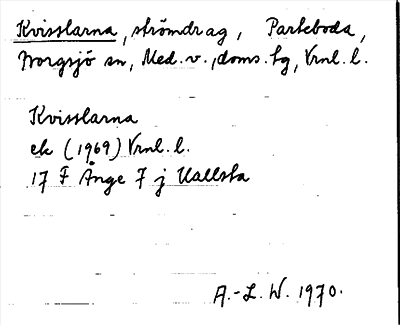 Kvisslarna, strömdrag, Parteboda,
Borgsjö sn, Med. v., doms. tg, Vrnl. l.
Kvisslarna
ek (1969) Vrnl. l.
17 F Ånge 7 j Kallsta
A.-L. W. 1970.